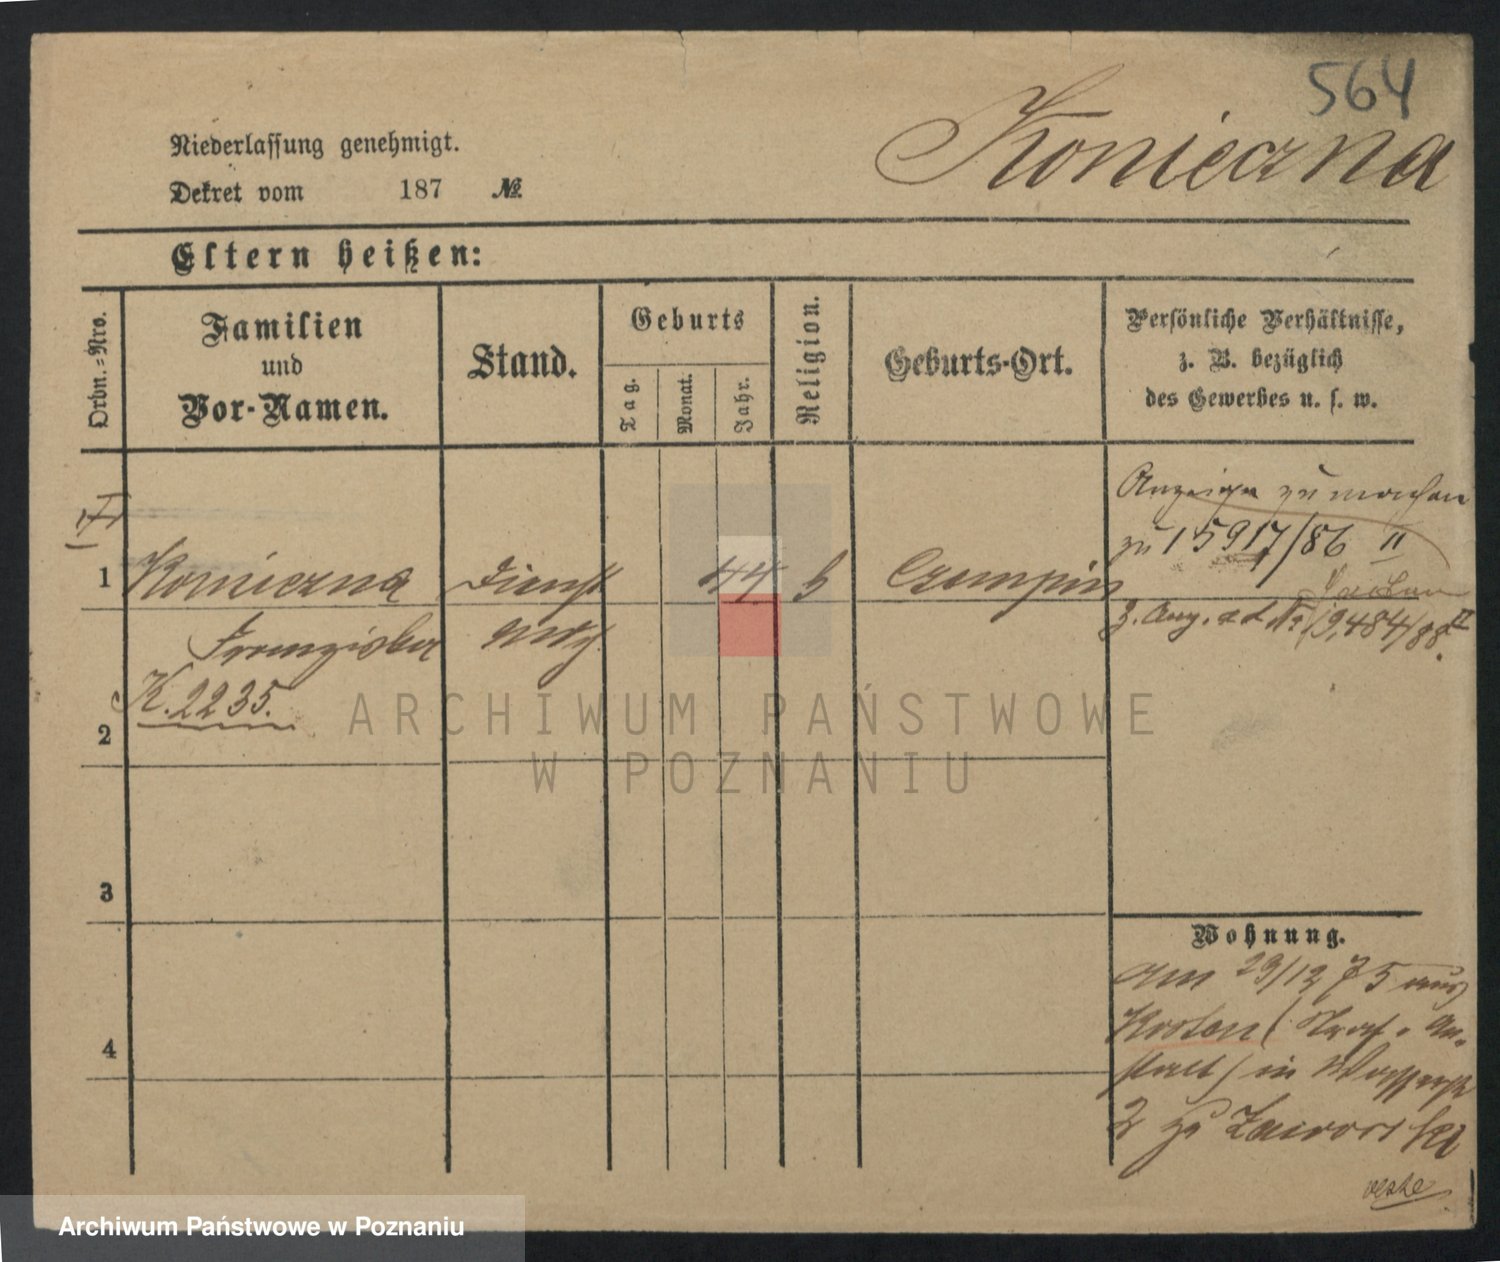 564
Konieczna
Niederlassung genehmigt.
Dekret vom 187 №
Eltern heißen:
Ordn.-Nro.
Familien
und
Vor-Namen.
Stand.
Geburts
Tag.
Monat.
Jahr.
Religion.
Geburts-Ort.
Persönliche Verhältnisse,
z. B. bezüglich
des Gewerbes u. s. w.
Anzeige zu machen
zu 15917/86 II
1 Konieczna Dienst 44 Czempin
z. Anz. ad № 19,484/88 II
Franziska
K. 2235.
2
3
4
Wohnung.
am 29/12 75 aus
Kosten (Straf-An-
stalt) in Wasserstr
2 zu Zawor
ARCHIWUM PAŃSTWOWE
W POZNANIU
Archiwum Państwowe w Poznaniu